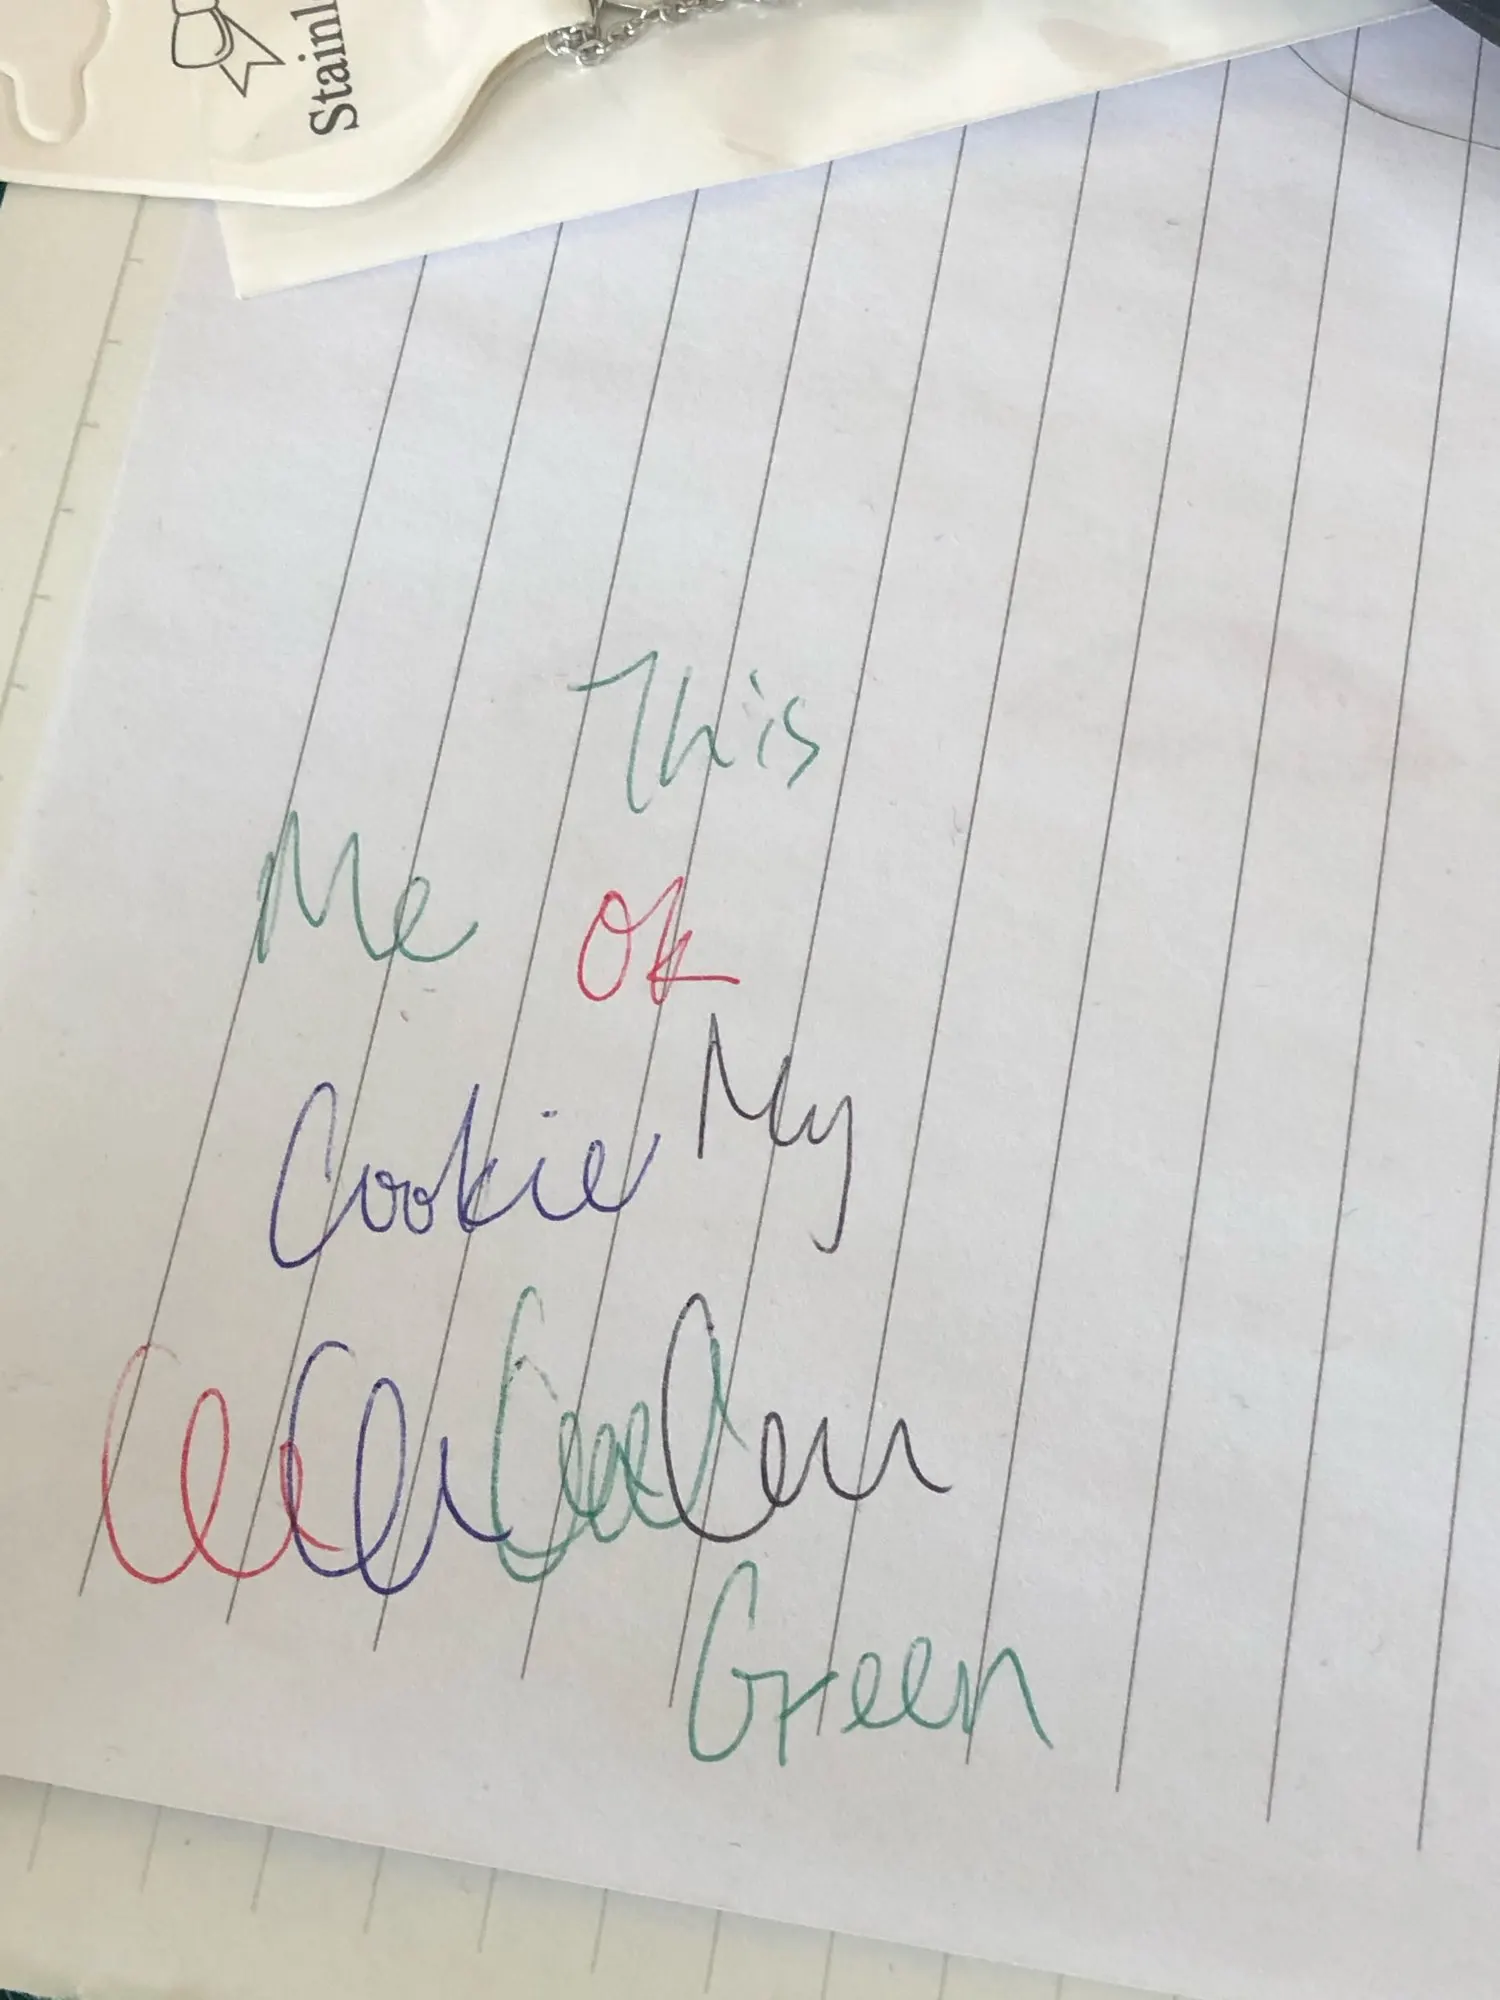 Stainl
This
Me Ok
Cookie My
Green